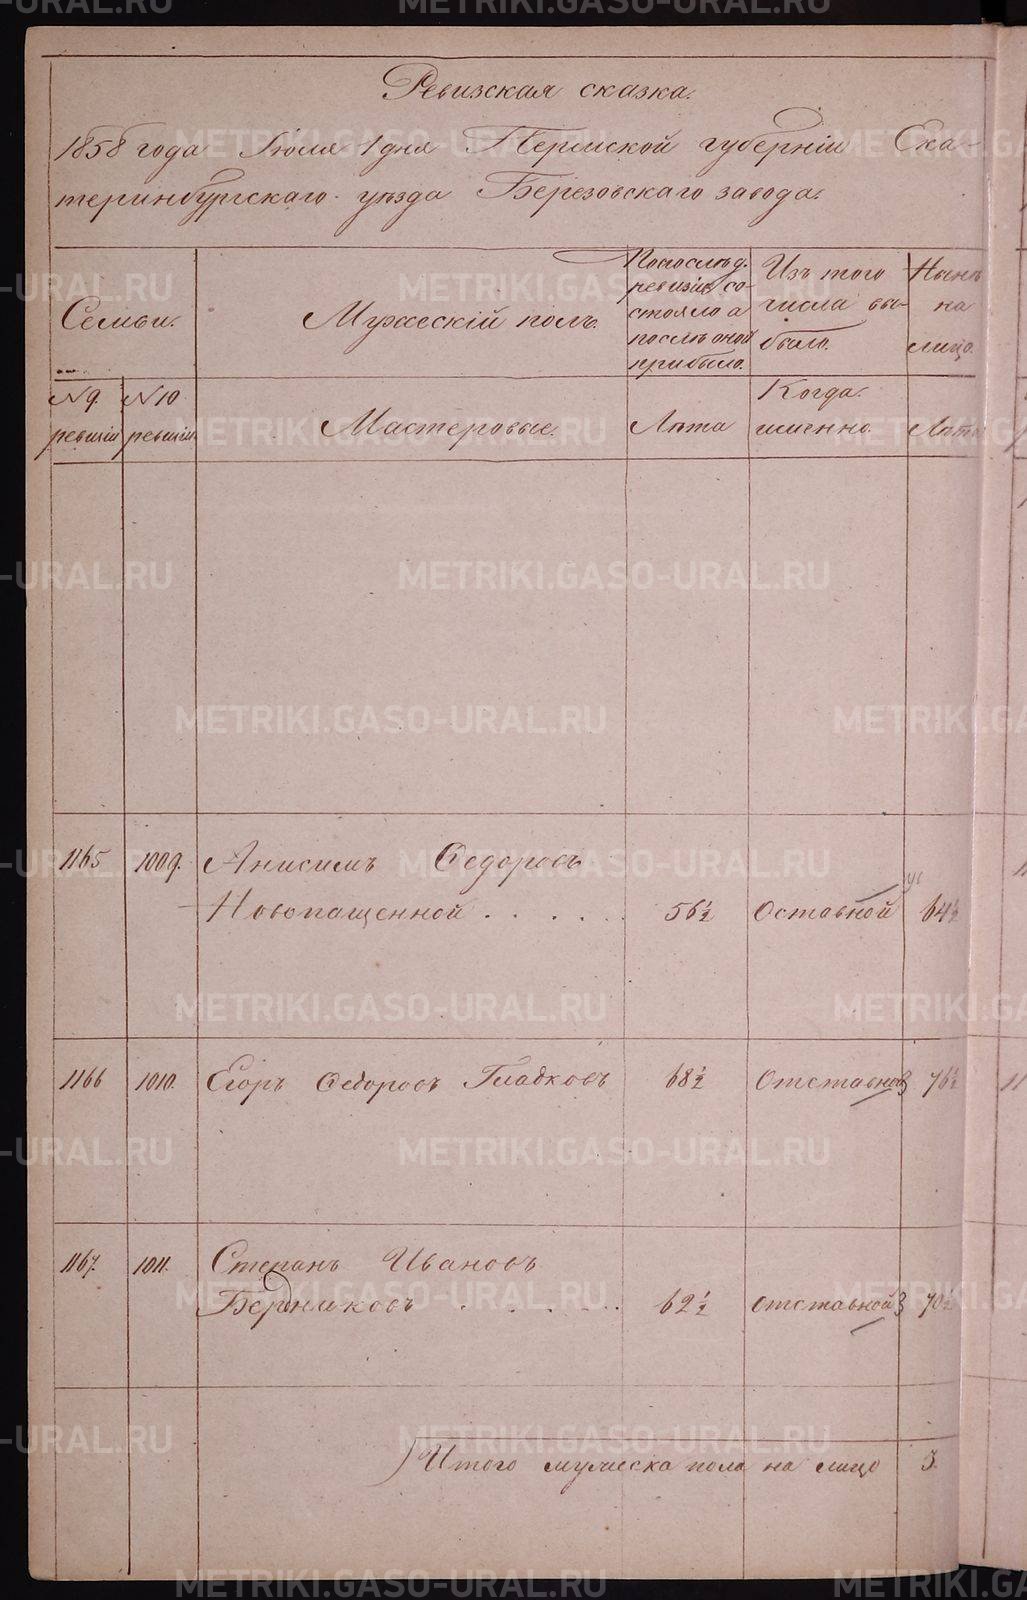 Ревизская сказка.
1858 года Июля 1 дня Пермской губерніи Ека-
теринбургскаго уѣзда Березовскаго завода.
Семьи.
Мужескій полъ.
По послѣд.
ревизіи со-
стояло а
послѣ оной
прибыло.
Изъ того
числа вы-
было.
Нынѣ
на
лицо.
№ 9.
ревизіи
№ 10
ревизіи
Мастеровые.
Лѣта
Когда
именно.
Лѣта
1165 1009. Анисимъ Ѳедоровъ
Новопашенной . . . . . . 56½ Оставной 64½
1166 1010. Егоръ Ѳедоровъ Гладковъ 68½ Отставной 76½
1167. 1011. Степанъ Ивановъ
Бердниковъ . . . . . . 62½ отставной 70½
Итого мужеска пола на лицо 3.
METRIKI.GASO-URAL.RU